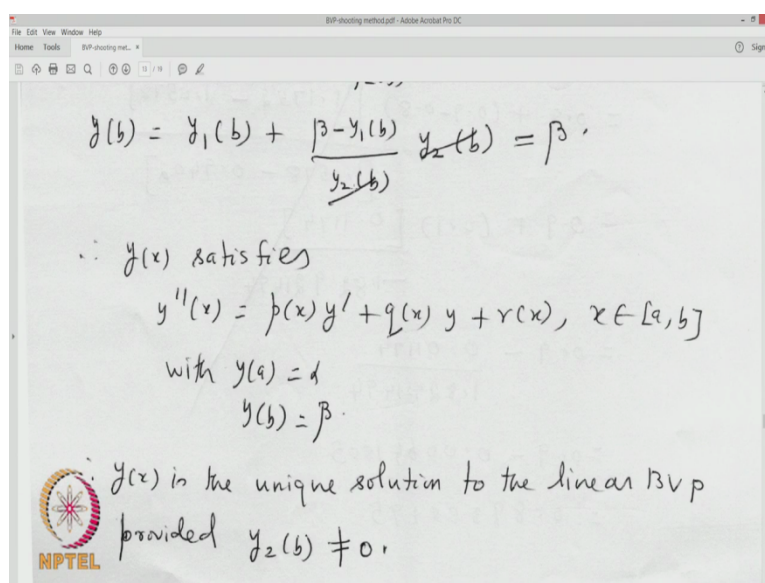 BVP-shooting method.pdf - Adobe Acrobat Pro DC
File Edit View Window Help
Home Tools BVP-shooting met... × Sign
13 / 19
y(b) = y₁(b) + (β - y₁(b))/y₂(b) y₂(b) = β.
∴ y(x) satisfies
y''(x) = p(x) y' + q(x) y + r(x), x ∈ [a, b]
with y(a) = α
y(b) = β.
∴ y(x) is the unique solution to the linear BVP
provided y₂(b) ≠ 0.
NPTEL